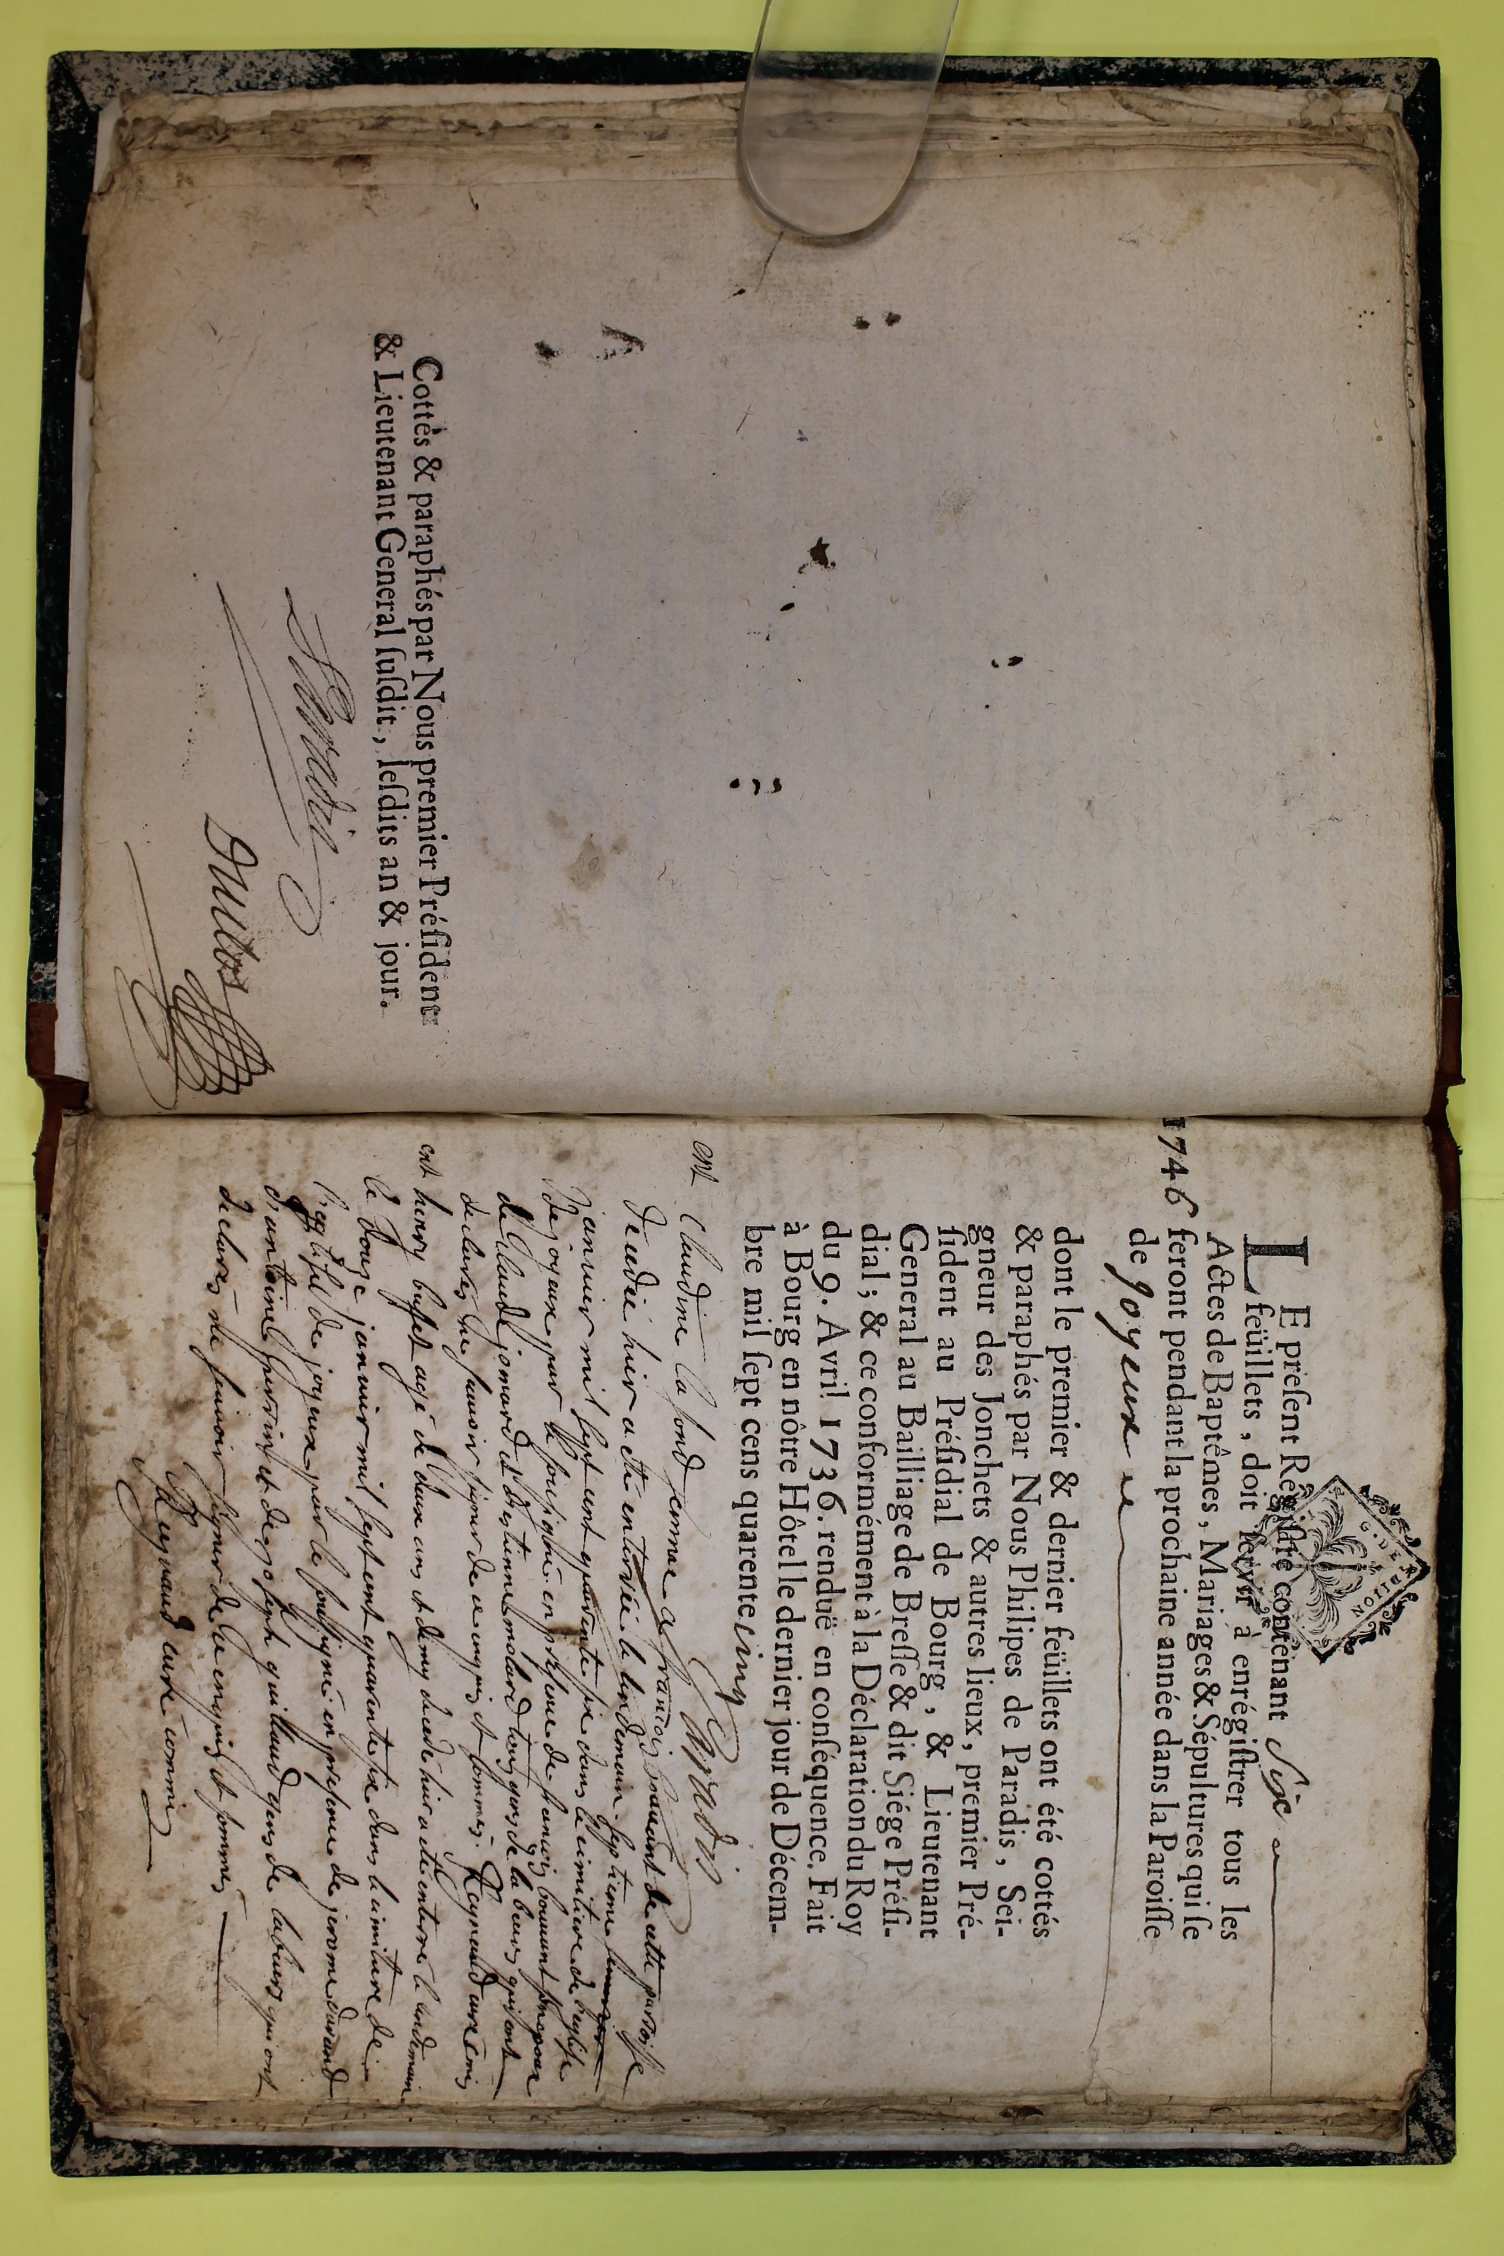 Cottés & paraphés par Nous premier Préſident
& Lieutenant General ſuſdit, leſdits an & jour.
Paradis
Dubos
G. DE DIJON
LE preſent Régiſtre contenant Six
feüillets, doit ſervir à enrégiſtrer tous les
Actes de Baptêmes, Mariages & Sépultures qui ſe
1746 feront pendant la prochaine année dans la Paroiſſe
de Joyeux
dont le premier & dernier feüillets ont été cottés
& paraphés par Nous Philipes de Paradis, Sei-
gneur des Jonchets & autres lieux, premier Pré-
ſident au Préſidial de Bourg, & Lieutenant
General au Bailliage de Breſſe & dit Siége Préſi-
dial; & ce conformément à la Déclaration du Roy
du 9. Avril 1736. renduë en conſéquence. Fait
à Bourg en nôtre Hôtel le dernier jour de Décem-
bre mil ſept cens quarente cinq
Paradis
ent Claudine la fond femme a francois de cette paroisse
decedée hier a été enterrée le lendemain septieme
janvier mil sept cent quarante six dans le cimitiere de l'eglise
de joyeux par le soussigné en presence de francois
de Claude jomard et d'estienne molard tous gens de labeur qui ont
declarés ne scavoir signer de ce enquis et sommés. Reynaud curé
ent henry buffet agé de deux ans et demy decedé hier a été enterré le lendemain
le douze janvier mil sept cent quarante six dans le cimitiere de
l'eglise de joyeux par le soussigné en presence de jerome durand
d'antoine perrin et de joseph guillaud gens de labeur qui ont
declarés ne scavoir signer de ce enquis et sommés
Reynaud curé commis